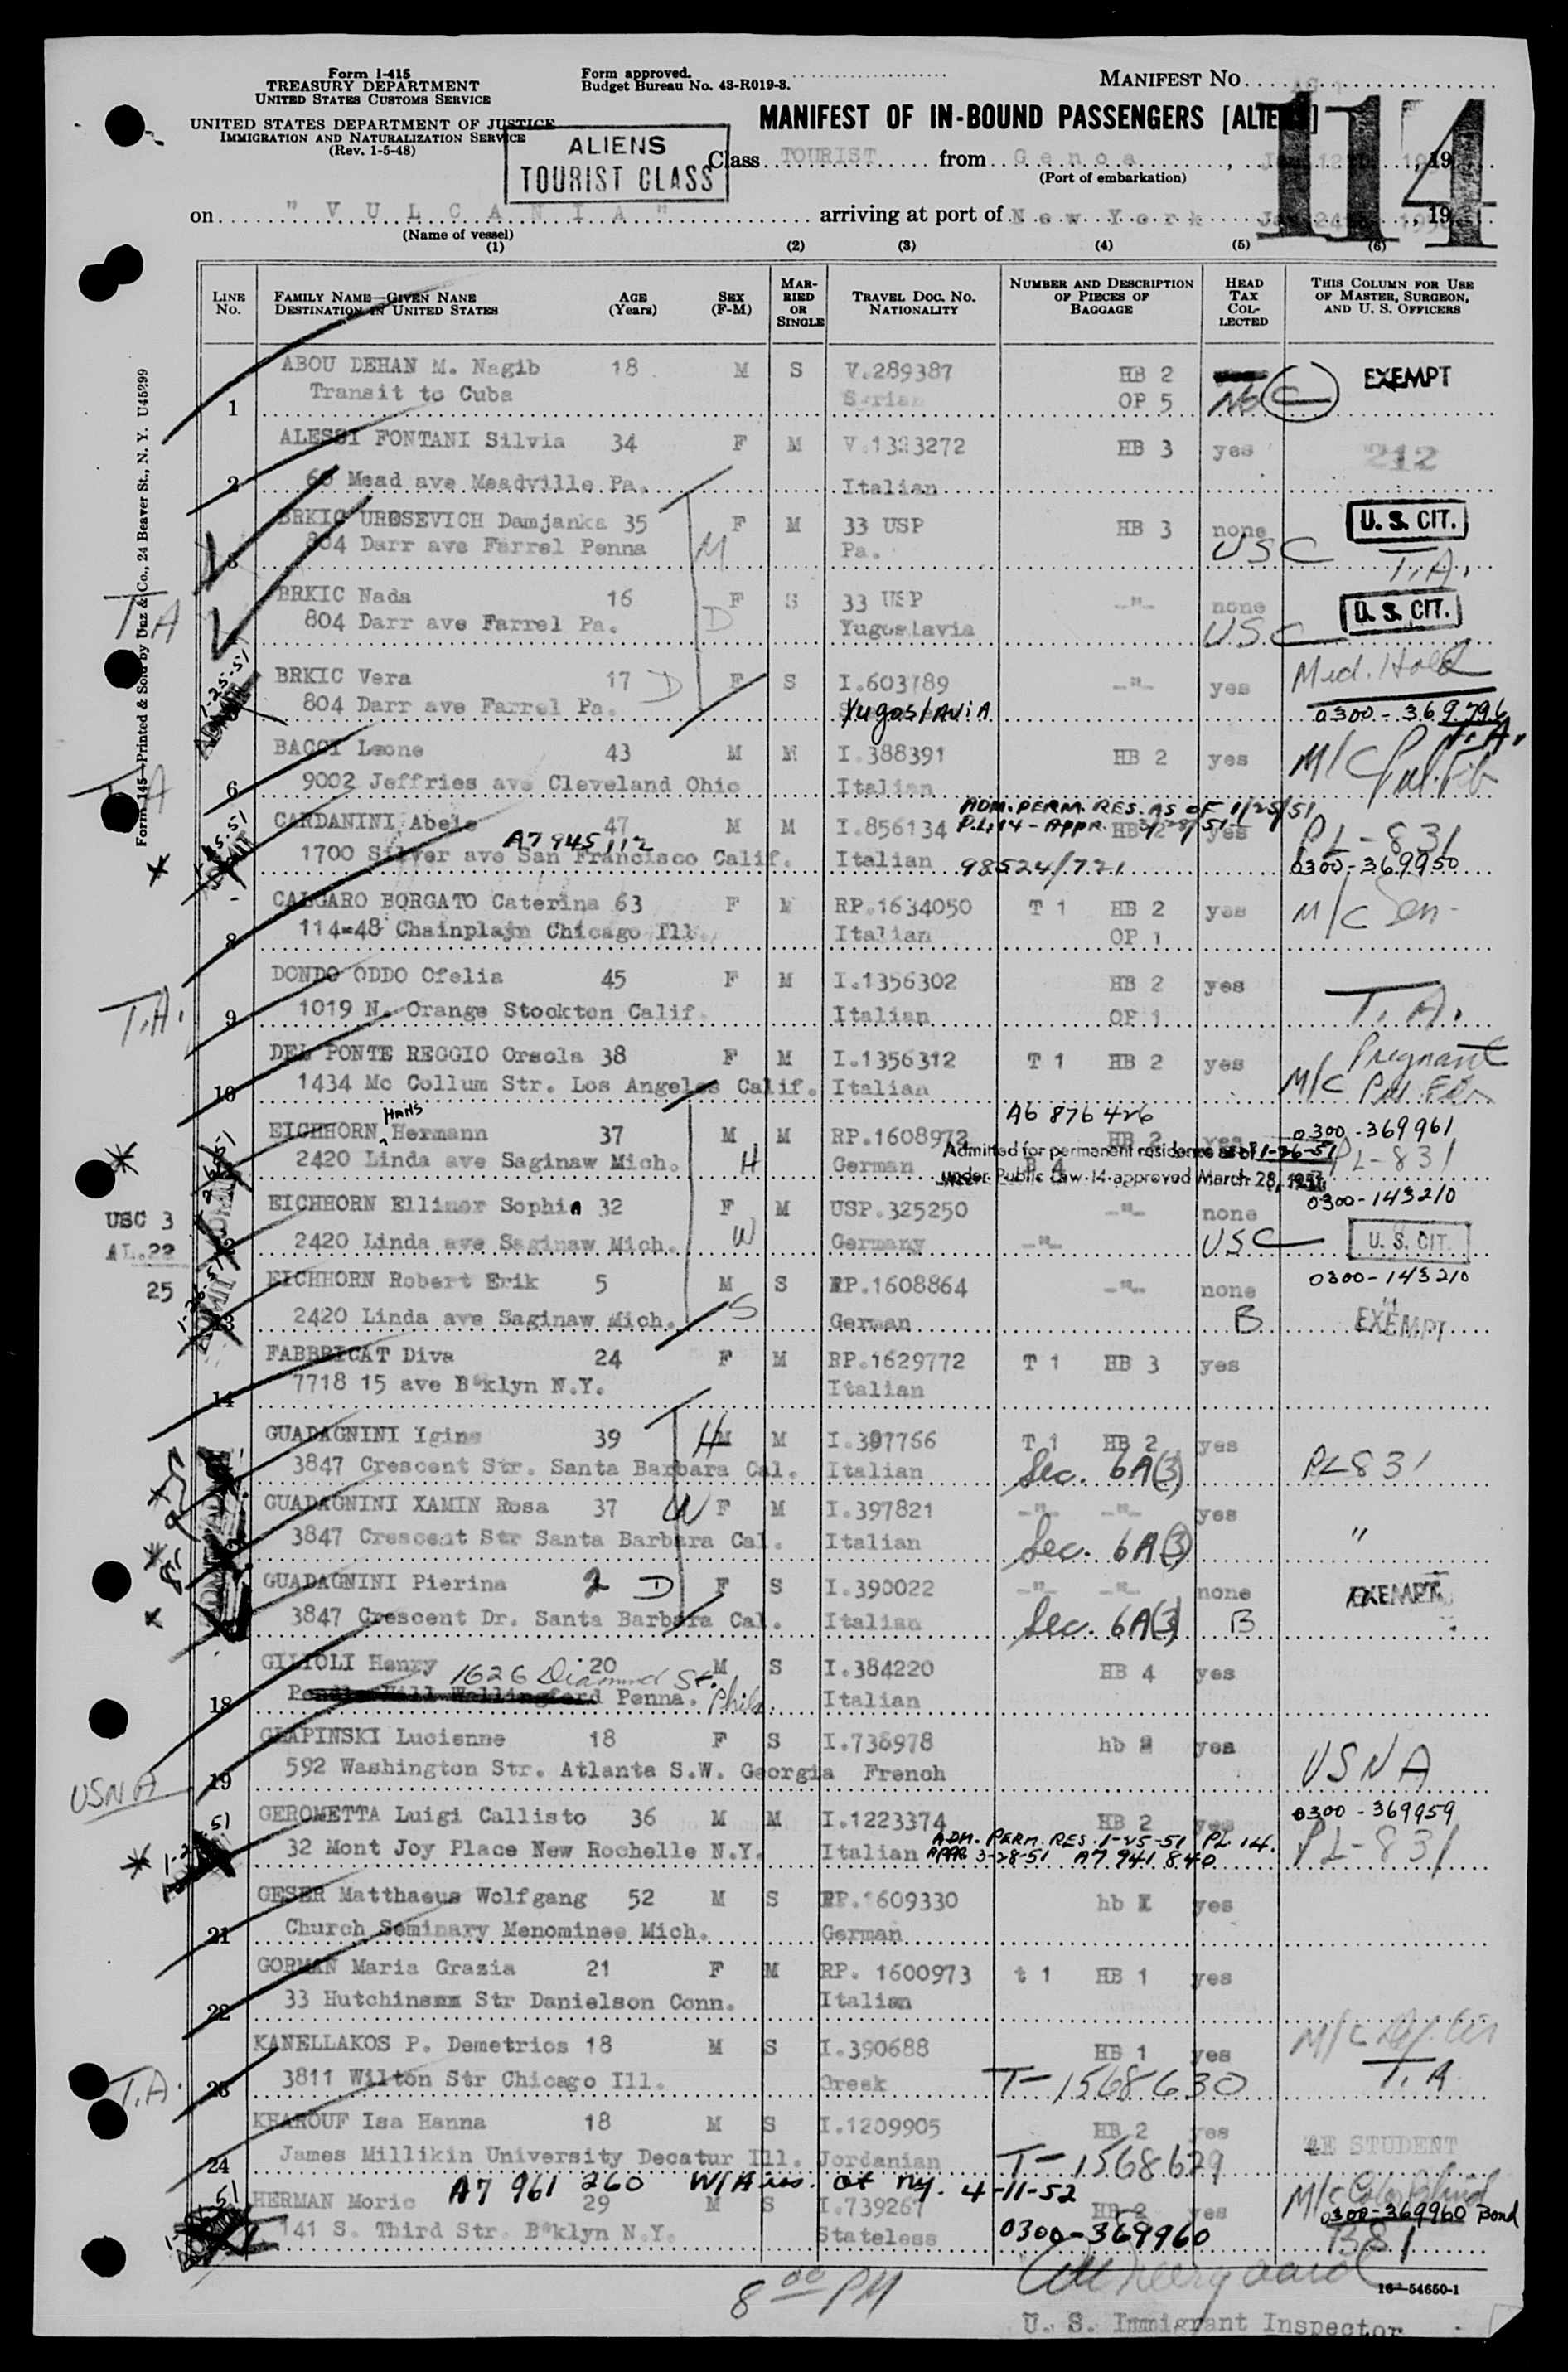 Form I-415
TREASURY DEPARTMENT
UNITED STATES CUSTOMS SERVICE
UNITED STATES DEPARTMENT OF JUSTICE
IMMIGRATION AND NATURALIZATION SERVICE
(Rev. 1-5-48)
Form approved.
Budget Bureau No. 43-R019-3.
MANIFEST NO
114
MANIFEST OF IN-BOUND PASSENGERS
ALIENS
TOURIST CLASS
Class TOURIST from Genoa, 19
(Port of embarkation)
on "VULCANIA" arriving at port of New York, 19
(Name of vessel)
(1) (2) (3) (4) (5) (6)
LINE NO.
FAMILY NAME—GIVEN NANE
DESTINATION IN UNITED STATES
AGE (Years)
SEX (F-M)
MARRIED OR SINGLE
TRAVEL DOC. NO. NATIONALITY
NUMBER AND DESCRIPTION OF PIECES OF BAGGAGE
HEAD TAX COLLECTED
THIS COLUMN FOR USE OF MASTER, SURGEON, AND U. S. OFFICERS
ABOU DEHAN M. Nagib 18 M S V.289387 HB 2 EXEMPT
1 Transit to Cuba Syrian OP 5 No C
ALESSI FONTANI Silvia 34 F M V.1323272 HB 3 yes 212
2 Mead ave Meadville Pa. Italian
BRKIC UROSEVICH Damjanka 35 F M 33 USP HB 3 none U. S. CIT.
3 804 Darr ave Farrel Penna M Pa. USC T.A.
BRKIC Nada 16 F S 33 USP -"- none U. S. CIT.
T.A 804 Darr ave Farrel Pa. D Yugoslavia USC
BRKIC Vera 17 D F S I.603789 -"- yes Med. Hold
804 Darr ave Farrel Pa. Yugoslavia 0300-369796
T.A.
BACCI Leone 43 M M I.388391 HB 2 yes M/C
6 9002 Jeffries ave Cleveland Ohio Italian
ADM. PERM. RES. AS OF 1/25/51
CARDANINI Abele 47 M M I.856134 P.L.14-APPR. 3/28/51 HB 2 yes PL-831
A7 945 112
1700 Silver ave San Francisco Calif. Italian 98524/721 0300-369950
CALGARO BORGATO Caterina 63 F M RP.1634050 T 1 HB 2 yes M/C Sen-
8 114-48 Chainplajn Chicago Ill. Italian OP 1
DONDO ODDO Ofelia 45 F M I.1356302 HB 2 yes
T.A. 9 1019 N. Orange Stockton Calif. Italian OP 1 T.A.
DEL PONTE REGGIO Orsola 38 F M I.1356312 T 1 HB 2 yes Pregnant
10 1434 Mc Collum Str. Los Angeles Calif. Italian M/C
A6 876 426
HANS
EICHHORN Hermann 37 M M RP.1608972 HB 2 yes 0300-369961
Admitted for permanent residence as of 1-26-51
2420 Linda ave Saginaw Mich. H German PL-831
under Public Law 14 approved March 28, 1951
EICHHORN Ellinor Sophia 32 F M USP.325250 -"- none 0300-143210
USC 3
AL.22
25
2420 Linda ave Saginaw Mich. W Germany -"- USC U. S. CIT.
EICHHORN Robert Erik 5 M S RP.1608864 -"- none 0300-143210
13 2420 Linda ave Saginaw Mich. S German B EXEMPT
FABBRICAT Diva 24 F M RP.1629772 T 1 HB 3 yes
14 7718 15 ave B*klyn N.Y. Italian
GUADAGNINI Igino 39 H M M I.397766 T 1 HB 2 yes
3847 Crescent Str. Santa Barbara Cal. Italian Sec. 6A(3) PL831
GUADAGNINI XAMIN Rosa 37 W F M I.397821 -"- -"- yes
3847 Crescent Str Santa Barbara Cal. Italian Sec. 6A(3) "
GUADAGNINI Pierina 2 D F S I.390022 -"- -"- none EXEMPT
3847 Crescent Dr. Santa Barbara Cal. Italian Sec. 6A(3) B
GILIOLI Henry 20 M S I.384220 HB 4 yes
1626 Diamond St.
18 Penna. Phila. Italian
GLAPINSKI Lucienne 18 F S I.736978 hb yes
USNA 19 592 Washington Str. Atlanta S.W. Georgia French USNA
GEROMETTA Luigi Callisto 36 M M I.1223374 HB 2 yes 0300-369959
ADM. PERM. RES. 1-25-51 PL 14.
32 Mont Joy Place New Rochelle N.Y. Italian APPR 3-28-51 A7 941 840 PL-831
GESER Matthaeus Wolfgang 52 M S RP.1609330 hb yes
21 Church Seminary Menominee Mich. German
GORMAN Maria Grazia 21 F M RP. 1600973 t 1 HB 1 yes
22 33 Hutchins Str Danielson Conn. Italian
KANELLAKOS P. Demetrios 18 M S I.390688 HB 1 yes M/C
T.A. 23 3811 Wilton Str Chicago Ill. Greek T-1568630 T.A.
KHAROUF Isa Hanna 18 M S I.1209905 HB 2 yes
24 James Millikin University Decatur Ill. Jordanian T-1568629 4E STUDENT
A7 961 260 at NY. 4-11-52
HERMAN Moric 29 M S I.739267 HB 2 yes M/C Color Blind
0300-369960 Bond
141 S. Third Str. B*klyn N.Y. Stateless 0300-369960
8 00 PM
16—54650-1
U. S. Immigrant Inspector
Printed & Sold by Unz & Co., 24 Beaver St., N. Y. U45299